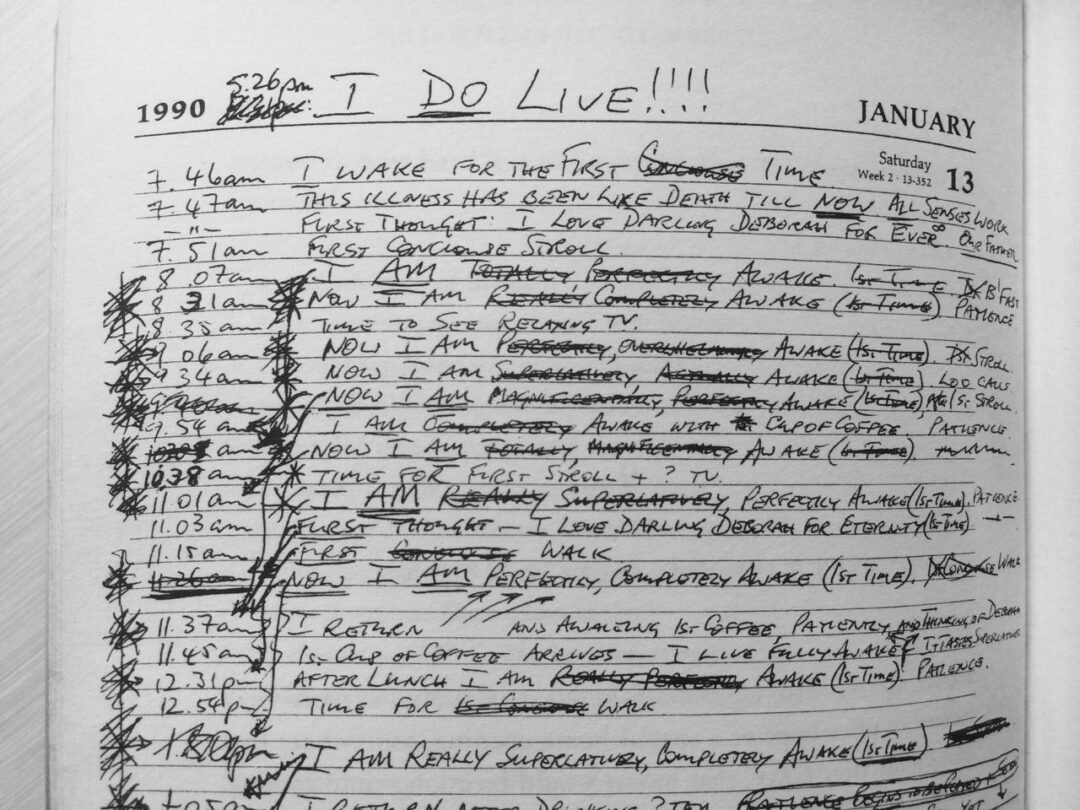 5.26pm I DO LIVE!!!!
1990 JANUARY
Saturday
Week 2 · 13-352 13
7.46am I WAKE FOR THE FIRST CONCIOUSE TIME.
7.47am THIS ILLNESS HAS BEEN LIKE DEATH TILL NOW ALL SENSES WORK
-"- FIRST THOUGHT: I LOVE DARLING DEBORAH FOR EVER. OUR FATHER
7.51am FIRST CONCIOUSE STROLL.
8.07am I AM TOTALLY PERFECTLY AWAKE. 1ST TIME B'FAST
8.31am NOW I AM REALLY COMPLETELY AWAKE (1ST TIME) PATIENCE
8.35am TIME TO SEE RELAXING TV.
9.06am NOW I AM PERFECTLY, OVERWHELMINGLY AWAKE (1ST TIME). STROLL.
9.34am NOW I AM SUPERLATIVELY, ACTUALLY AWAKE (1ST TIME). LOO CALL.
NOW I AM MAGNIFICENTLY, PERFECTLY AWAKE (1ST TIME) 1ST STROLL.
9.54am I AM COMPLETELY AWAKE WITH CUP OF COFFEE. PATIENCE.
am NOW I AM TOTALLY, MAGNIFICENTLY AWAKE (1ST TIME)
10.38am TIME FOR FIRST STROLL + ? TV.
11.01am I AM REALLY SUPERLATIVELY, PERFECTLY AWAKE (1ST TIME). PATIENCE
11.03am FIRST THOUGHT - I LOVE DARLING DEBORAH FOR ETERNITY (1ST TIME).
11.15am FIRST CONCIOUSE WALK
11.26am NOW I AM PERFECTLY, COMPLETELY AWAKE (1ST TIME). CONCIOUSE WALK
11.37am I RETURN AND AWAITING 1ST COFFEE, PATIENTLY AND THINKING OF DEBORAH
11.45am 1ST CUP OF COFFEE ARRIVES — I LIVE FULLY AWAKE IT TASTES SUPERLATIVE
12.31pm AFTER LUNCH I AM REALLY PERFECTLY AWAKE (1ST TIME). PATIENCE.
12.54pm TIME FOR 1ST CONCIOUSE WALK.
I AM REALLY SUPERLATIVELY, COMPLETELY AWAKE (1ST TIME)
I RETURN AFTER DRINKING ? TEA